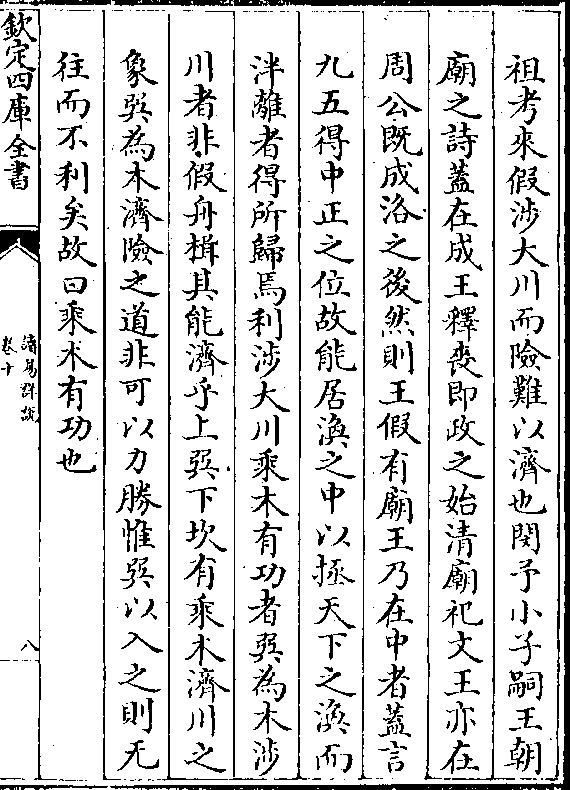 祖考來假涉大川而險難以濟也閔予小子嗣王朝
廟之詩蓋在成王釋喪即政之始清廟祀文王亦在
周公既成洛之後然則王假有廟王乃在中者蓋言
九五得中正之位故能居渙之中以拯天下之渙而
泮離者得所歸焉利涉大川乘木有功者巽為木涉
川者非假舟楫其能濟乎上巽下坎有乘木濟川之
象巽為木濟險之道非可以力勝惟巽以入之則无
往而不利矣故曰乘木有功也
欽定四庫全書
讀易詳說
卷十
八